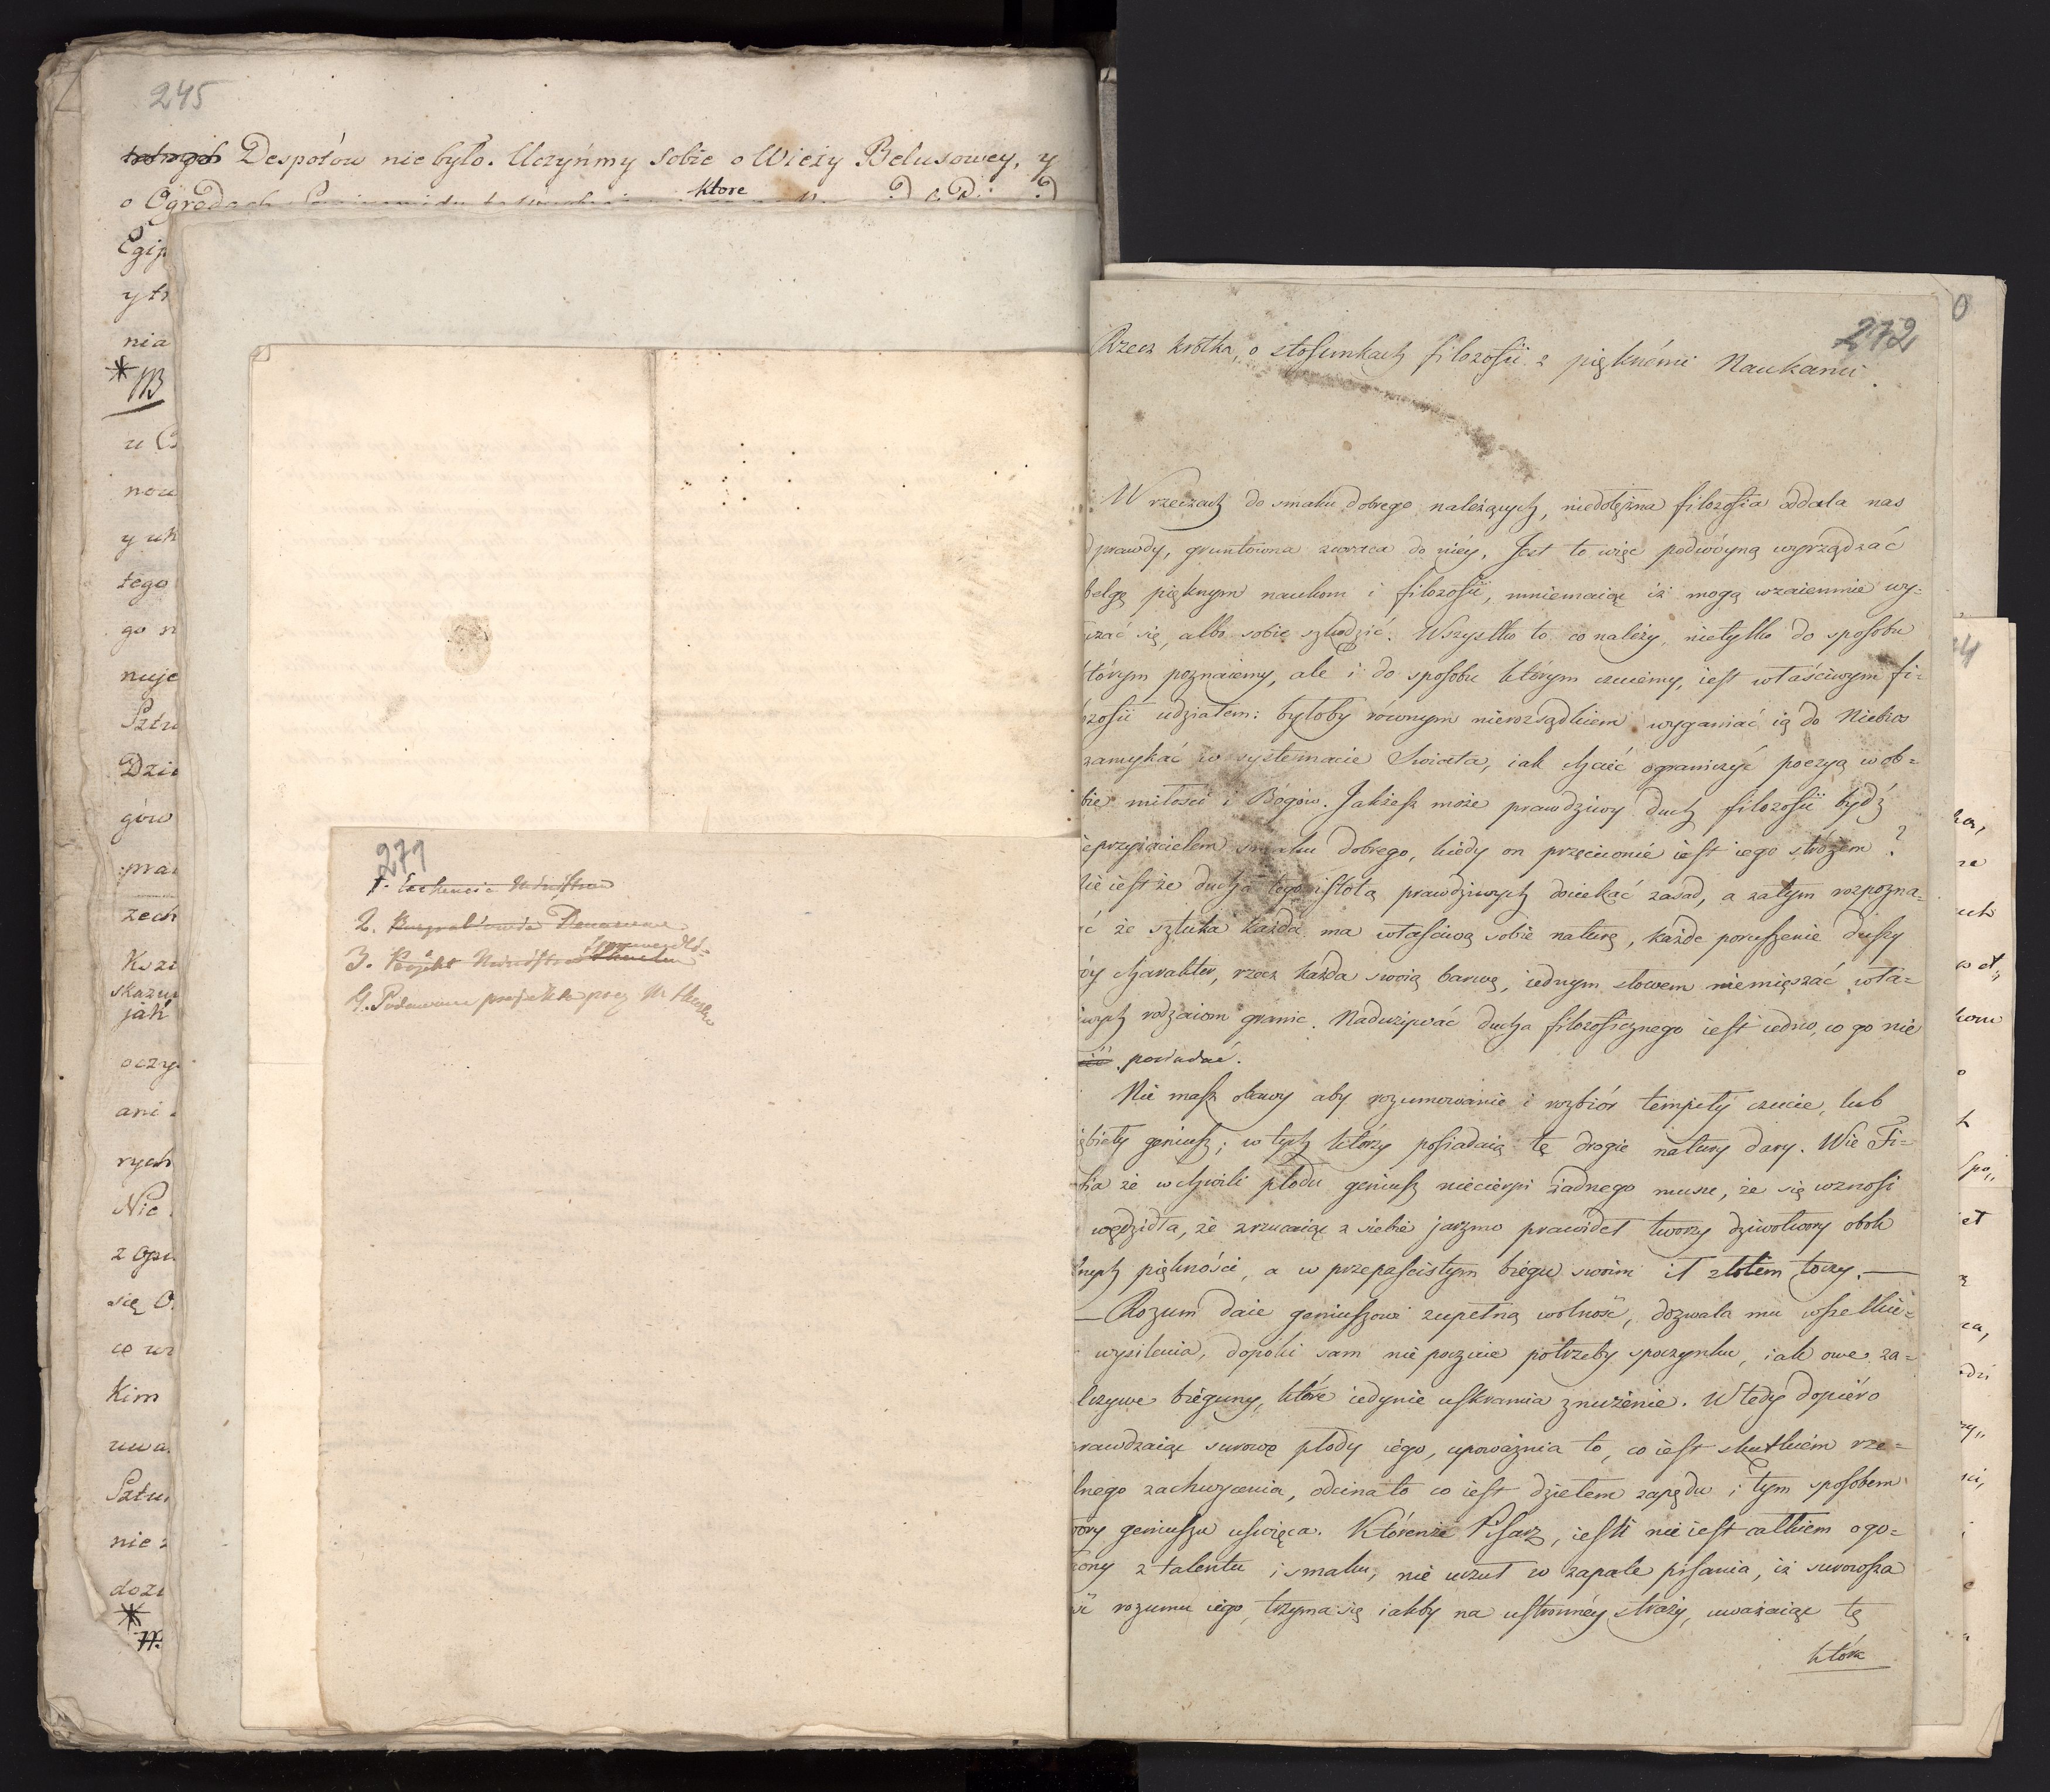 245
Despotów nie było. Uczyńmy sobie o Wieży Belusowey, y
o Ogrodach
ktore
Egip
y tr
nia
NB
u
now
y uk
tego
go n
nuje
Sztu
Dzie
gów
pra
zech
Kszi
skazu
jak
oczy
ani
rych
Nie
z Opu
się O
co wi
kim
uwa
Sztu
nie
dozi
271
1.
2.
3. Projekt Ministra
Sprawiedli=
4. Podawane projekta przy
272
Rzecz krótka, o stosunkach filozofii z pięknémi Naukami.
W rzeczach do smaku dobrego należących, niedołężna filozofia oddala nas
prawdy, gruntowna zwraca do niéy. Jest to więc podwóyną wyrządzać
belgę pięknym naukom i filozofii, mniemaiąc iż mogą wzaiemnie wy=
czać się, albo sobie szkodzić. Wszystko to, co należy, nietylko do sposobu
którym poznaiemy, ale i do sposobu którym czuiemy, iest właściwym fi=
zofii udziałem: byłoby równym nierozsądkiem wyganiać ią do Niebios
zamykać w systemacie Swiata, iak chcieć ograniczyć poezyą w ob=
bie miłości i Bogów. Jakżesz może prawdziwy duch filozofii bydź
ieprzyiacielem smaku dobrego, kiedy on przeciwnie iest iego stróżem?
Nie iest że ducha tego istotą prawdziwych dociekać zasad, a zatym rozpozna=
ć że sztuka każda ma właściwą sobie naturę, każde poruszenie duszy
óy charakter, rzecz każda swoią barwę, iednym słowem niemięszać wła=
iwych rodzaiom granic. Nadużywać ducha filozoficznego iest iedno, co go nie
posiadać.
Nie masz obawy aby rozumowanie i rozbiór tempiły czucie, lub
ębiały geniusz; w tych którzy posiadaią tę drogie natury dary. Wie Fi=
fia że w chwili płodu geniusz niecierpi żadnego musu, że się wznosi
wędzidła, że zrzucaiąc z siebie jarzmo prawideł tworzy dziwotwory obok
nych piękności, a w przepaścistym biegu swoim ił złotem toczy. —
— Rozum daie geniuszowi zupełną wolność, dozwala mu wszelkie=
wysilenia, dopóki sam nie poczuie potrzeby spoczynku, iak owe za=
lczywe bieguny, które iedynie uskramia znużenie. Wtedy dopiéro
rawdzaiąc surowo płody iego, upoważnia to, co iest skutkiém rze=
lnego zachwycenia, odcina to co iest dziełem zapędu i tym sposobem
ory geniuszu uświęca. Którenże Pisarz, iesli nie iest całkiem ogo=
cony z talentu i smaku, nie uczuł w zapale pisania, iż surowsza
ść rozumu iego, trzyma się iakby na ustronnéy straży, uważaiąc tę
która